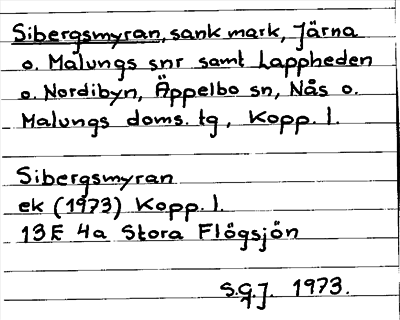 Sibergsmyran, sank mark, Järna
o. Malungs snr samt Lappheden
o. Nordibyn, Äppelbo sn, Nås o.
Malungs doms. tg, Kopp. l.
Sibergsmyran
ek (1973) Kopp. l.
13E 4a Stora Flögsjön
S.G.J. 1973.